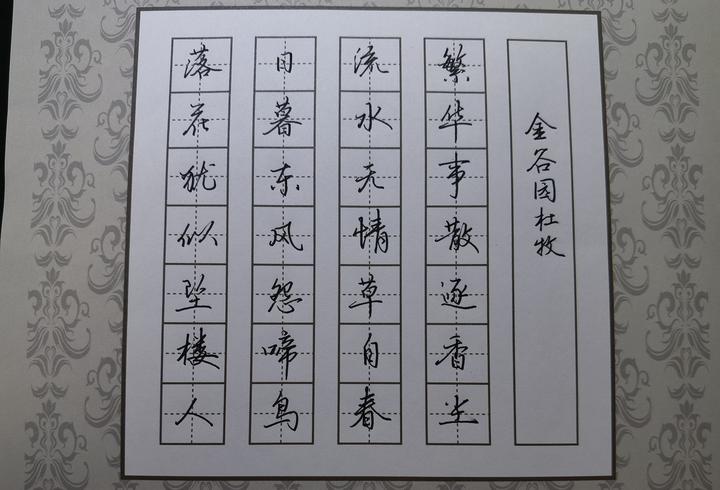 金谷园杜牧
繁华事散逐香尘
流水无情草自春
日暮东风怨啼鸟
落花犹似坠楼人